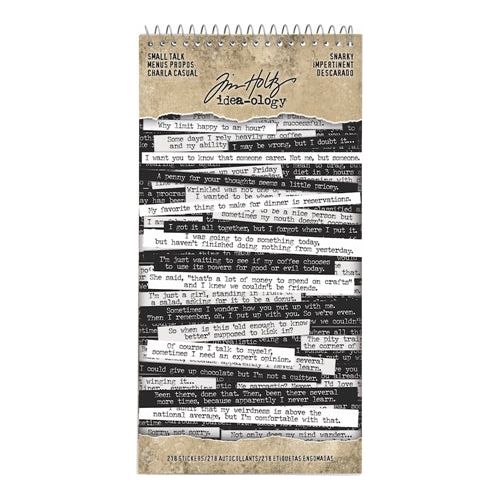 SMALL TALK
MENUS PROPOS
CHARLA CASUAL
SNARKY
IMPERTINENT
DESCARADO
Tim Holtz
idea-ology
Why limit happy to an hour?
successful.
Some days I rely heavily on coffee
and my ability
I may be wrong, but I doubt it...
I want you to know that someone cares. Not me, but someone.
up your Friday
diet in 3 hours
A penny for your thoughts seems a little pricey.
Wrinkled was not one of
I wanted to be when I
My favorite thing to make for dinner is reservations.
to be a nice person but
sometimes my mouth doesn't
I got it all together, but I forgot where I put it.
I was going to do something today,
but haven't finished doing nothing from yesterday.
I'm just waiting to see if my coffee chooses
to use its powers for good or evil today.
She said, "that's a lot of money to spend on crafts"
and I knew we couldn't be friends.
I'm just a girl, standing in front of
a salad, asking for it to be a donut.
Sometimes I wonder how you put up with me.
Then I remember, oh, I put up with you. So we're even.
So when is this "old enough to know
better" supposed to kick in?
Of course I talk to myself,
sometimes I need an expert opinion.
The pity train
the corner of
several
I could give up chocolate but I'm not a quitter.
winging it...
Me sarcastic? Never.
Been there, done that. Then, been there several
more times, because apparently I never learn.
I admit that my weirdness is above the
national average, but I'm comfortable with that.
Sorry not sorry
Not only does my mind wander...
218 STICKERS/218 AUTOCOLLANTS/218 ETIQUETAS ENGOMADAS